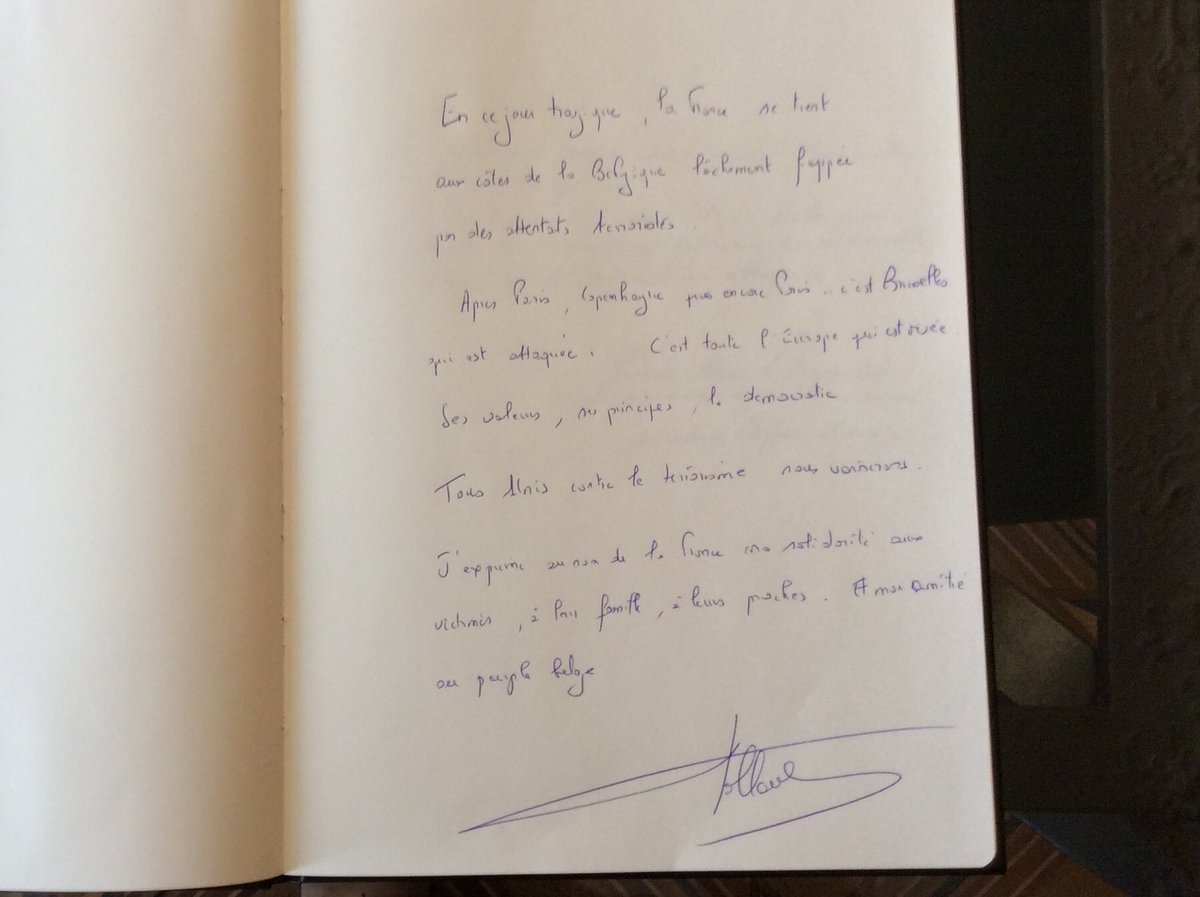 En ce jour tragique, la France se tient
aux côtés de la Belgique lâchement frappée
par des attentats terroristes.
Après Paris, Copenhague puis encore Paris.. c'est Bruxelles
qui est attaquée. C'est toute l'Europe qui est visée.
Ses valeurs, ses principes, la démocratie
Tous Unis contre le terrorisme nous vaincrons.
J'exprime au nom de la France ma solidarité aux
victimes, à leur famille, à leurs proches. Et mon amitié
au peuple belge
Hollande